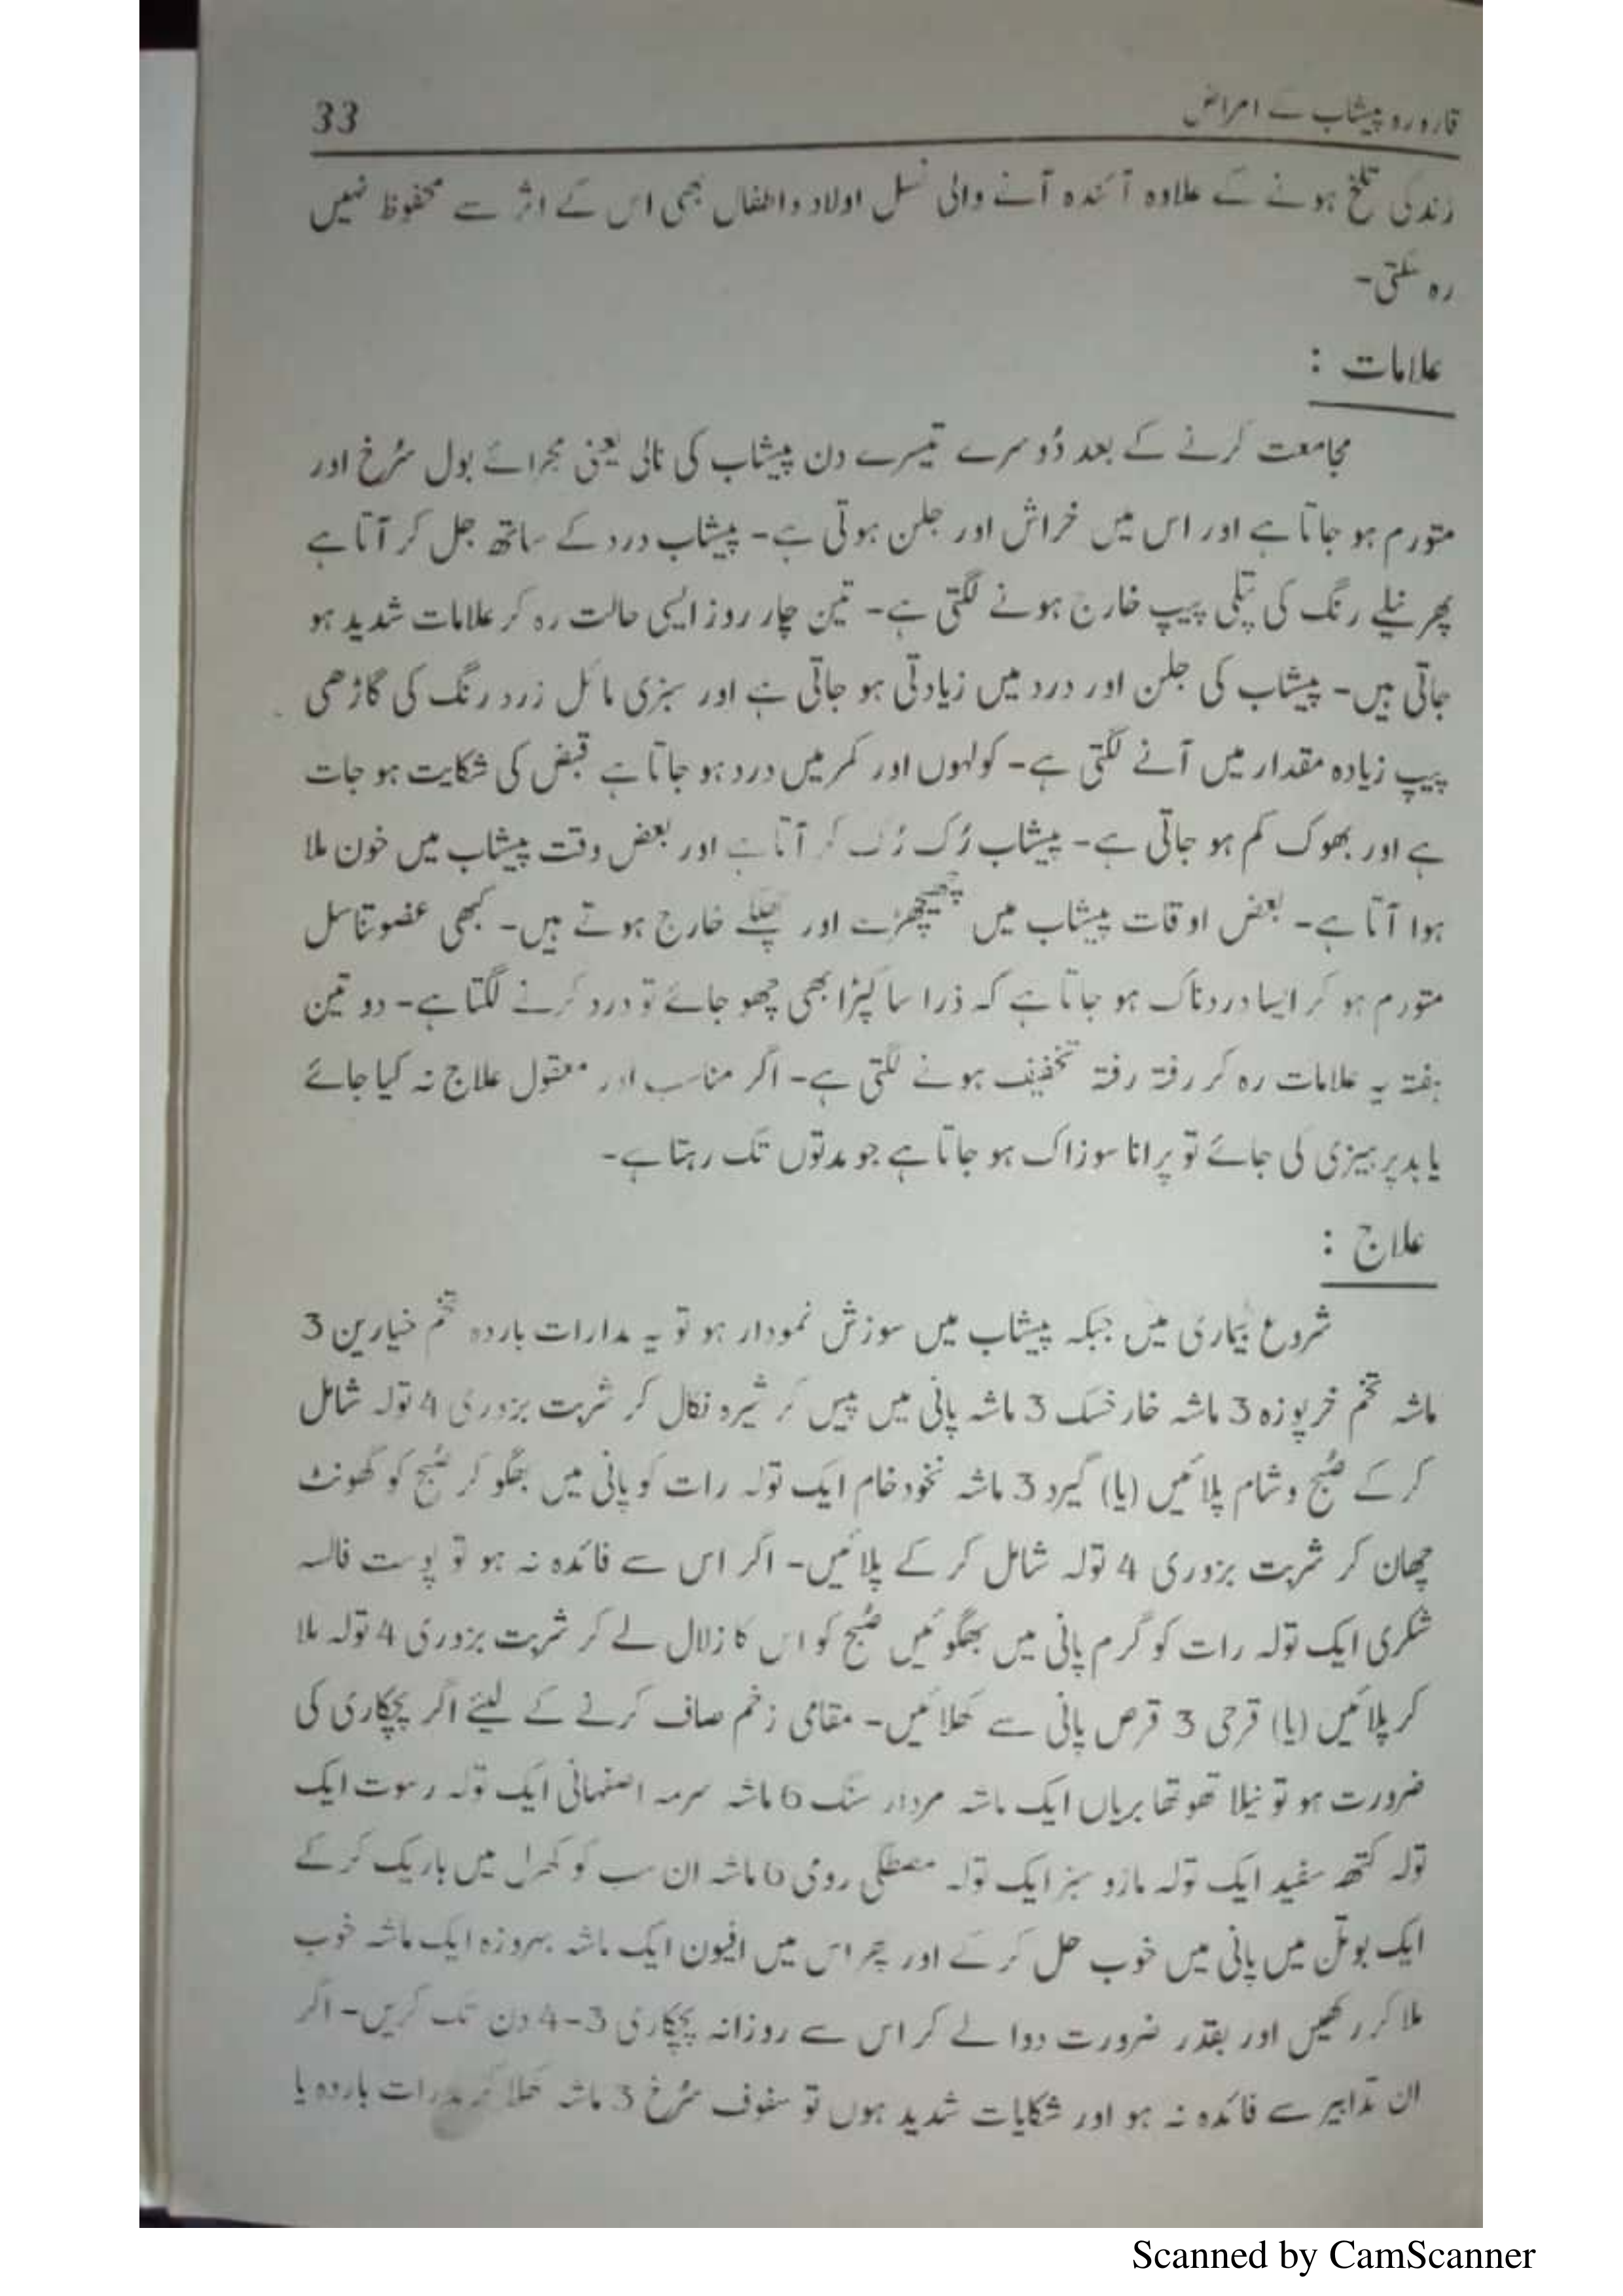 قارورہ پیشاب کے امراض 33
زندگی تلخ ہونے کے علاوہ آئندہ آنے والی نسل اولاد و اطفال بھی اس کے اثر سے محفوظ نہیں
رہ سکتی۔
علامات :
مجامعت کرنے کے بعد دُوسرے تیسرے دن پیشاب کی نالی یعنی مجرائے بول سُرخ اور
متورم ہو جاتا ہے اور اس میں خراش اور جلن ہوتی ہے۔ پیشاب درد کے ساتھ جل کر آتا ہے
پھر نیلے رنگ کی پتلی پیپ خارج ہونے لگتی ہے۔ تین چار روز ایسی حالت رہ کر علامات شدید ہو
جاتی ہیں۔ پیشاب کی جلن اور درد میں زیادتی ہو جاتی ہے اور سبزی مائل زرد رنگ کی گاڑھی
پیپ زیادہ مقدار میں آنے لگتی ہے۔ کولہوں اور کمر میں درد ہو جاتا ہے قبض کی شکایت ہو جات
ہے اور بھوک کم ہو جاتی ہے۔ پیشاب رُک رُک کر آتا ہے اور بعض وقت پیشاب میں خون ملا
ہوا آتا ہے۔ بعض اوقات پیشاب میں چھیچھڑے اور چھلکے خارج ہوتے ہیں۔ کبھی عضوتناسل
متورم ہو کر ایسا دردناک ہو جاتا ہے کہ ذرا سا کپڑا بھی چھو جائے تو درد کرنے لگتا ہے۔ دو تین
ہفتہ یہ علامات رہ کر رفتہ رفتہ تخفیف ہونے لگتی ہے۔ اگر مناسب اور معقول علاج نہ کیا جائے
یا بدپرہیزی کی جائے تو پرانا سوزاک ہو جاتا ہے جو مدتوں تک رہتا ہے۔
علاج :
شروع بیماری میں جبکہ پیشاب میں سوزش نمودار ہو تو یہ مدارات باردہ تخم خیارین 3
ماشہ تخم خرپوزہ 3 ماشہ خارخسک 3 ماشہ پانی میں پیس کر شیرہ نکال کر شربت بزوری 4 تولہ شامل
کر کے صُبح و شام پلائیں (یا) گیرو 3 ماشہ نخود خام ایک تولہ رات کو پانی میں بھگو کر صُبح کو گھونٹ
چھان کر شربت بزوری 4 تولہ شامل کر کے پلائیں۔ اگر اس سے فائدہ نہ ہو تو پوست فالسہ
شکری ایک تولہ رات کو گرم پانی میں بھگوئیں صُبح کو اس کا زلال لے کر شربت بزوری 4 تولہ ملا
کر پلائیں (یا) قرحی 3 قرص پانی سے کھلائیں۔ مقامی زخم صاف کرنے کے لیئے اگر پچکاری کی
ضرورت ہو تو نیلا تھوتھا بریاں ایک ماشہ مردار سنگ 6 ماشہ سرمہ اصفہانی ایک تولہ رسوت ایک
تولہ کتھ سفید ایک تولہ مازو سبز ایک تولہ مصطگی رومی 6 ماشہ ان سب کو کھرل میں باریک کرکے
ایک بوتل میں پانی میں خوب حل کرکے اور پھر اس میں افیون ایک ماشہ بہروزہ ایک ماشہ خوب
ملا کر رکھیں اور بقدر ضرورت دوا لے کر اس سے روزانہ پچکاری 3-4 دن تک کریں۔ اگر
ان تدابیر سے فائدہ نہ ہو اور شکایات شدید ہوں تو سفوف سُرخ 3 ماشہ کھلا کر مدرات باردہ یا
Scanned by CamScanner